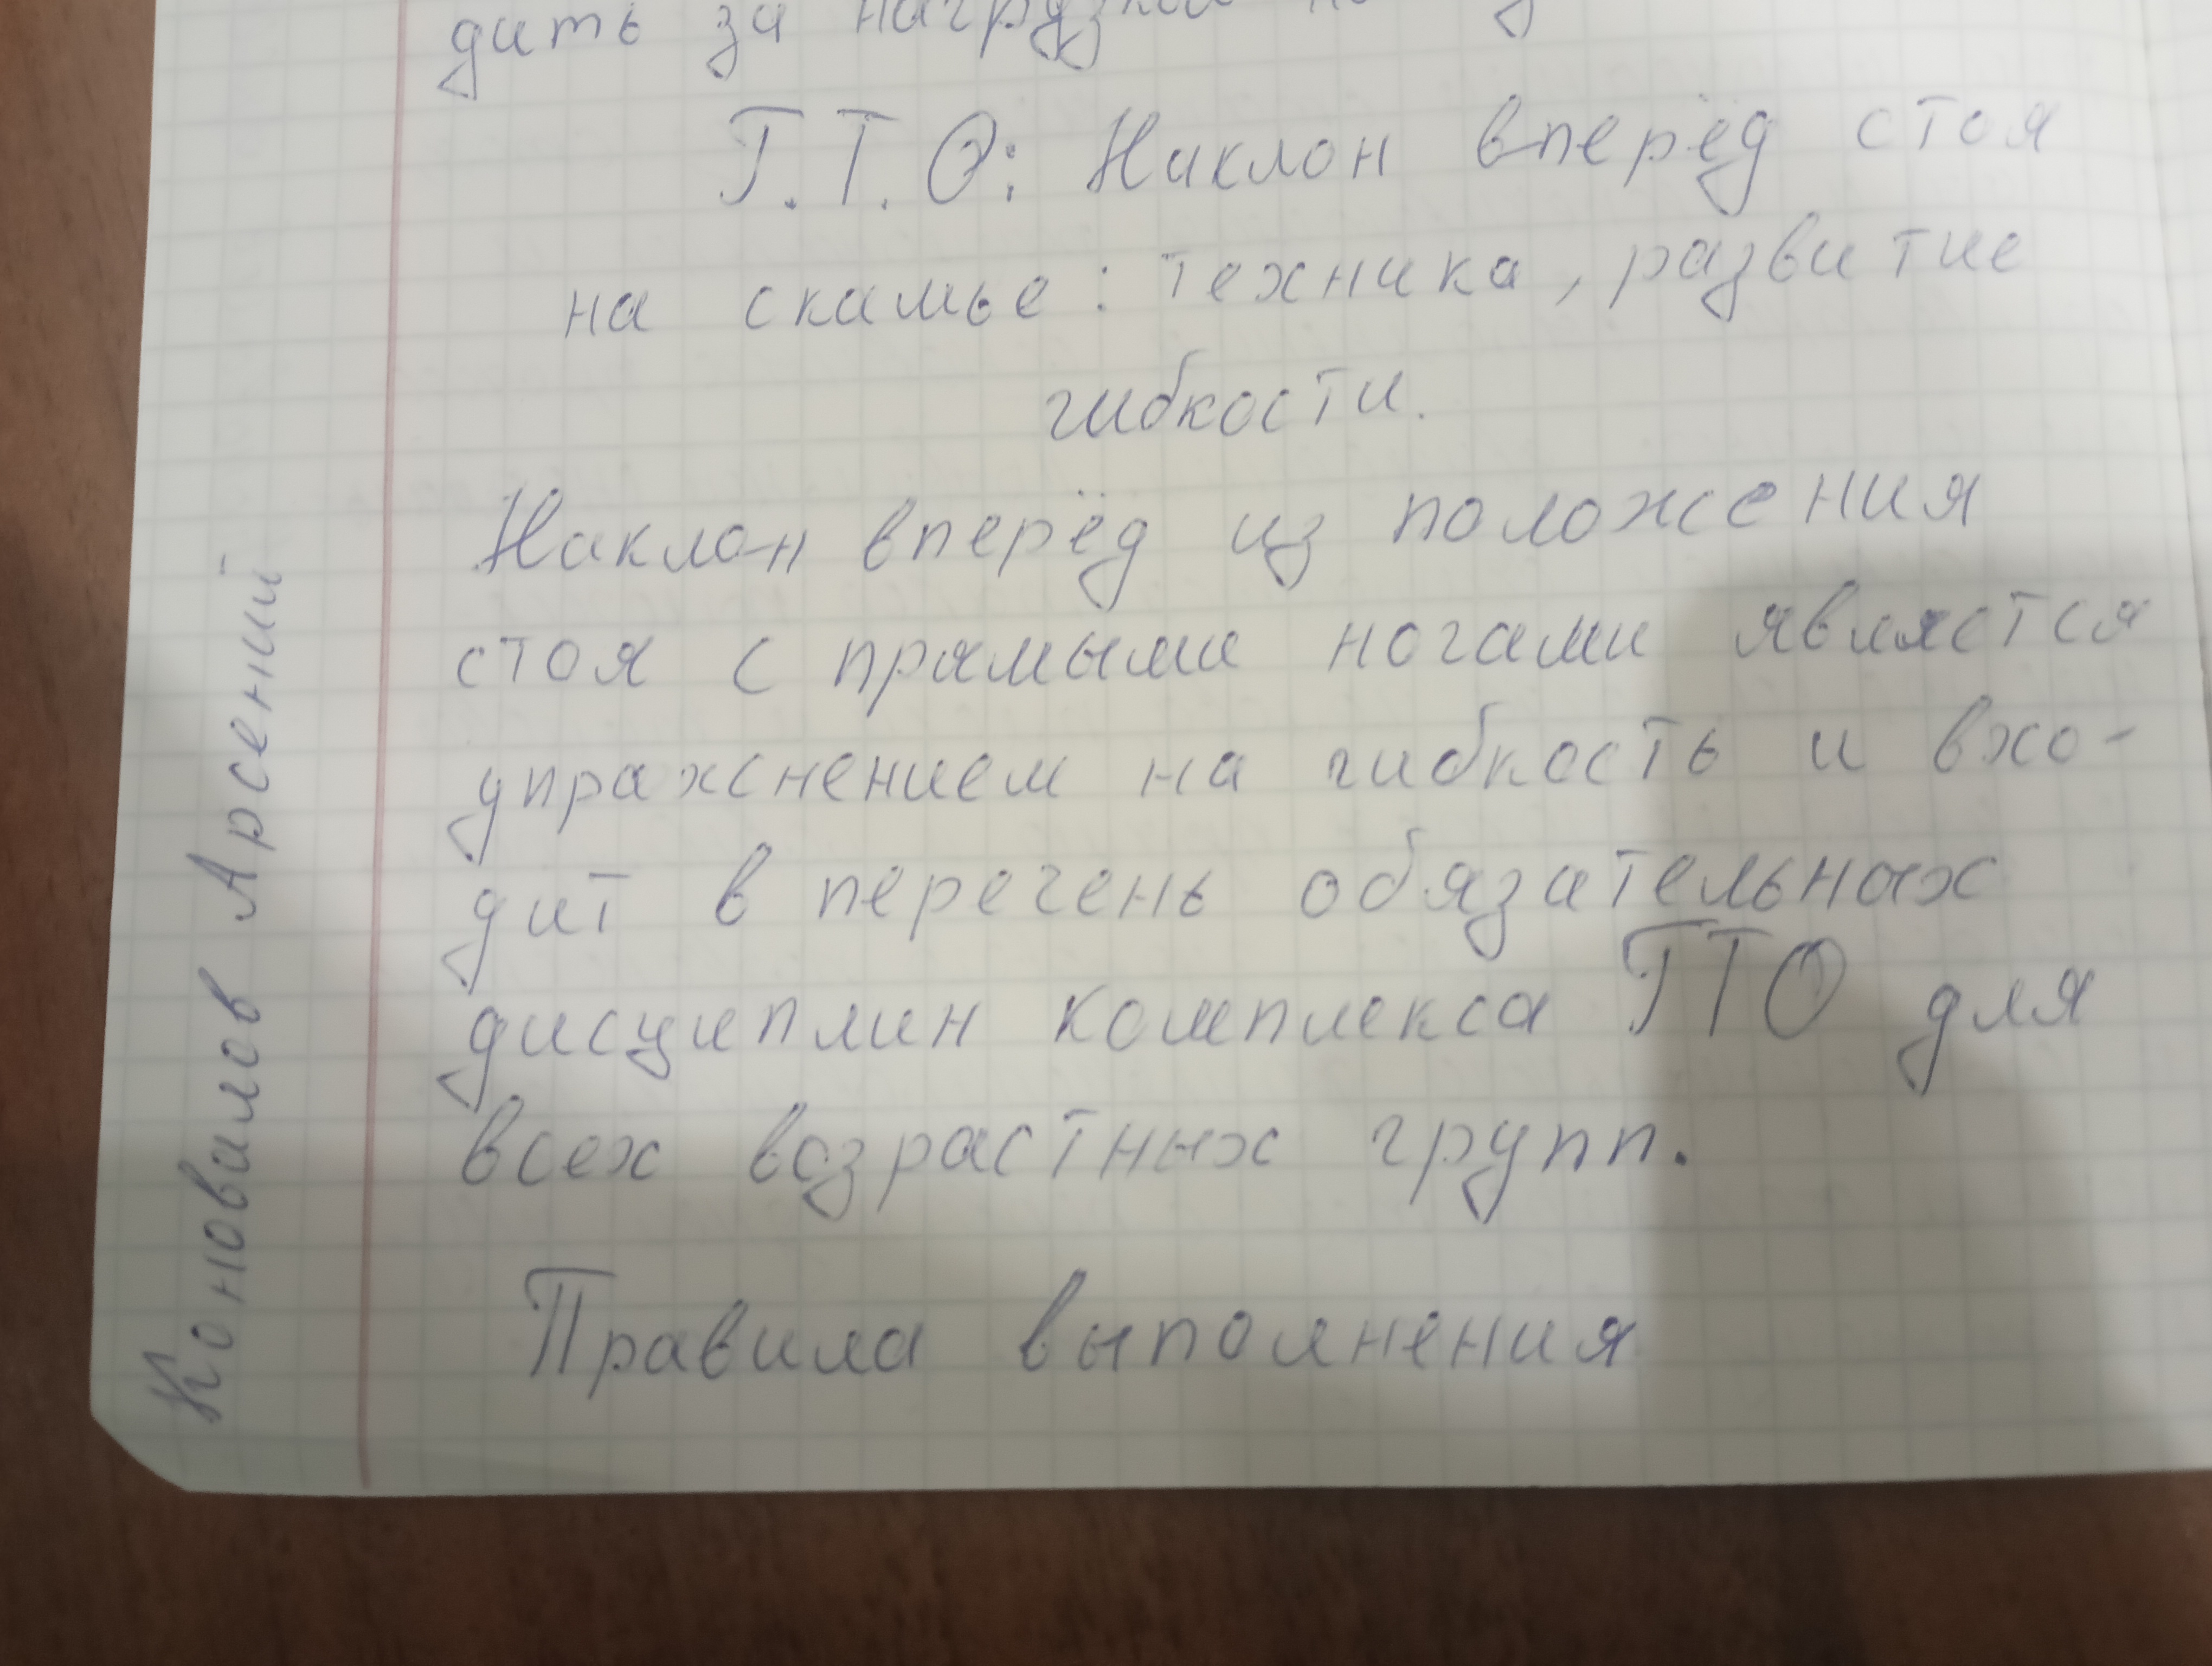 дить за нагрузкой
Г.Т.О: Наклон вперёд стоя
на скамье: техника, развитие
гибкости.
Наклон вперёд из положения
стоя с прямыми ногами является
упражнением на гибкость и вхо-
дит в перечень обязательных
дисциплин комплекса ГТО для
всех возрастных групп.
Правила выполнения
Коновалов Арсений